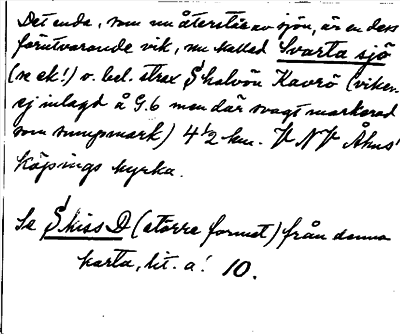 Det enda, som nu återstår av sjön, är en dess
förutvarande vik, nu kallad Svarta sjö
(se ek!) o. bel. strax S halvön Kavrö (viken
ej inlagd å G.6 men där svagt markerad
som sumpmark) 4 1/2 km. V N V Åhus'
köpings kyrka.
Se Skiss D (större format) från denna
karta, lit. a! 10.